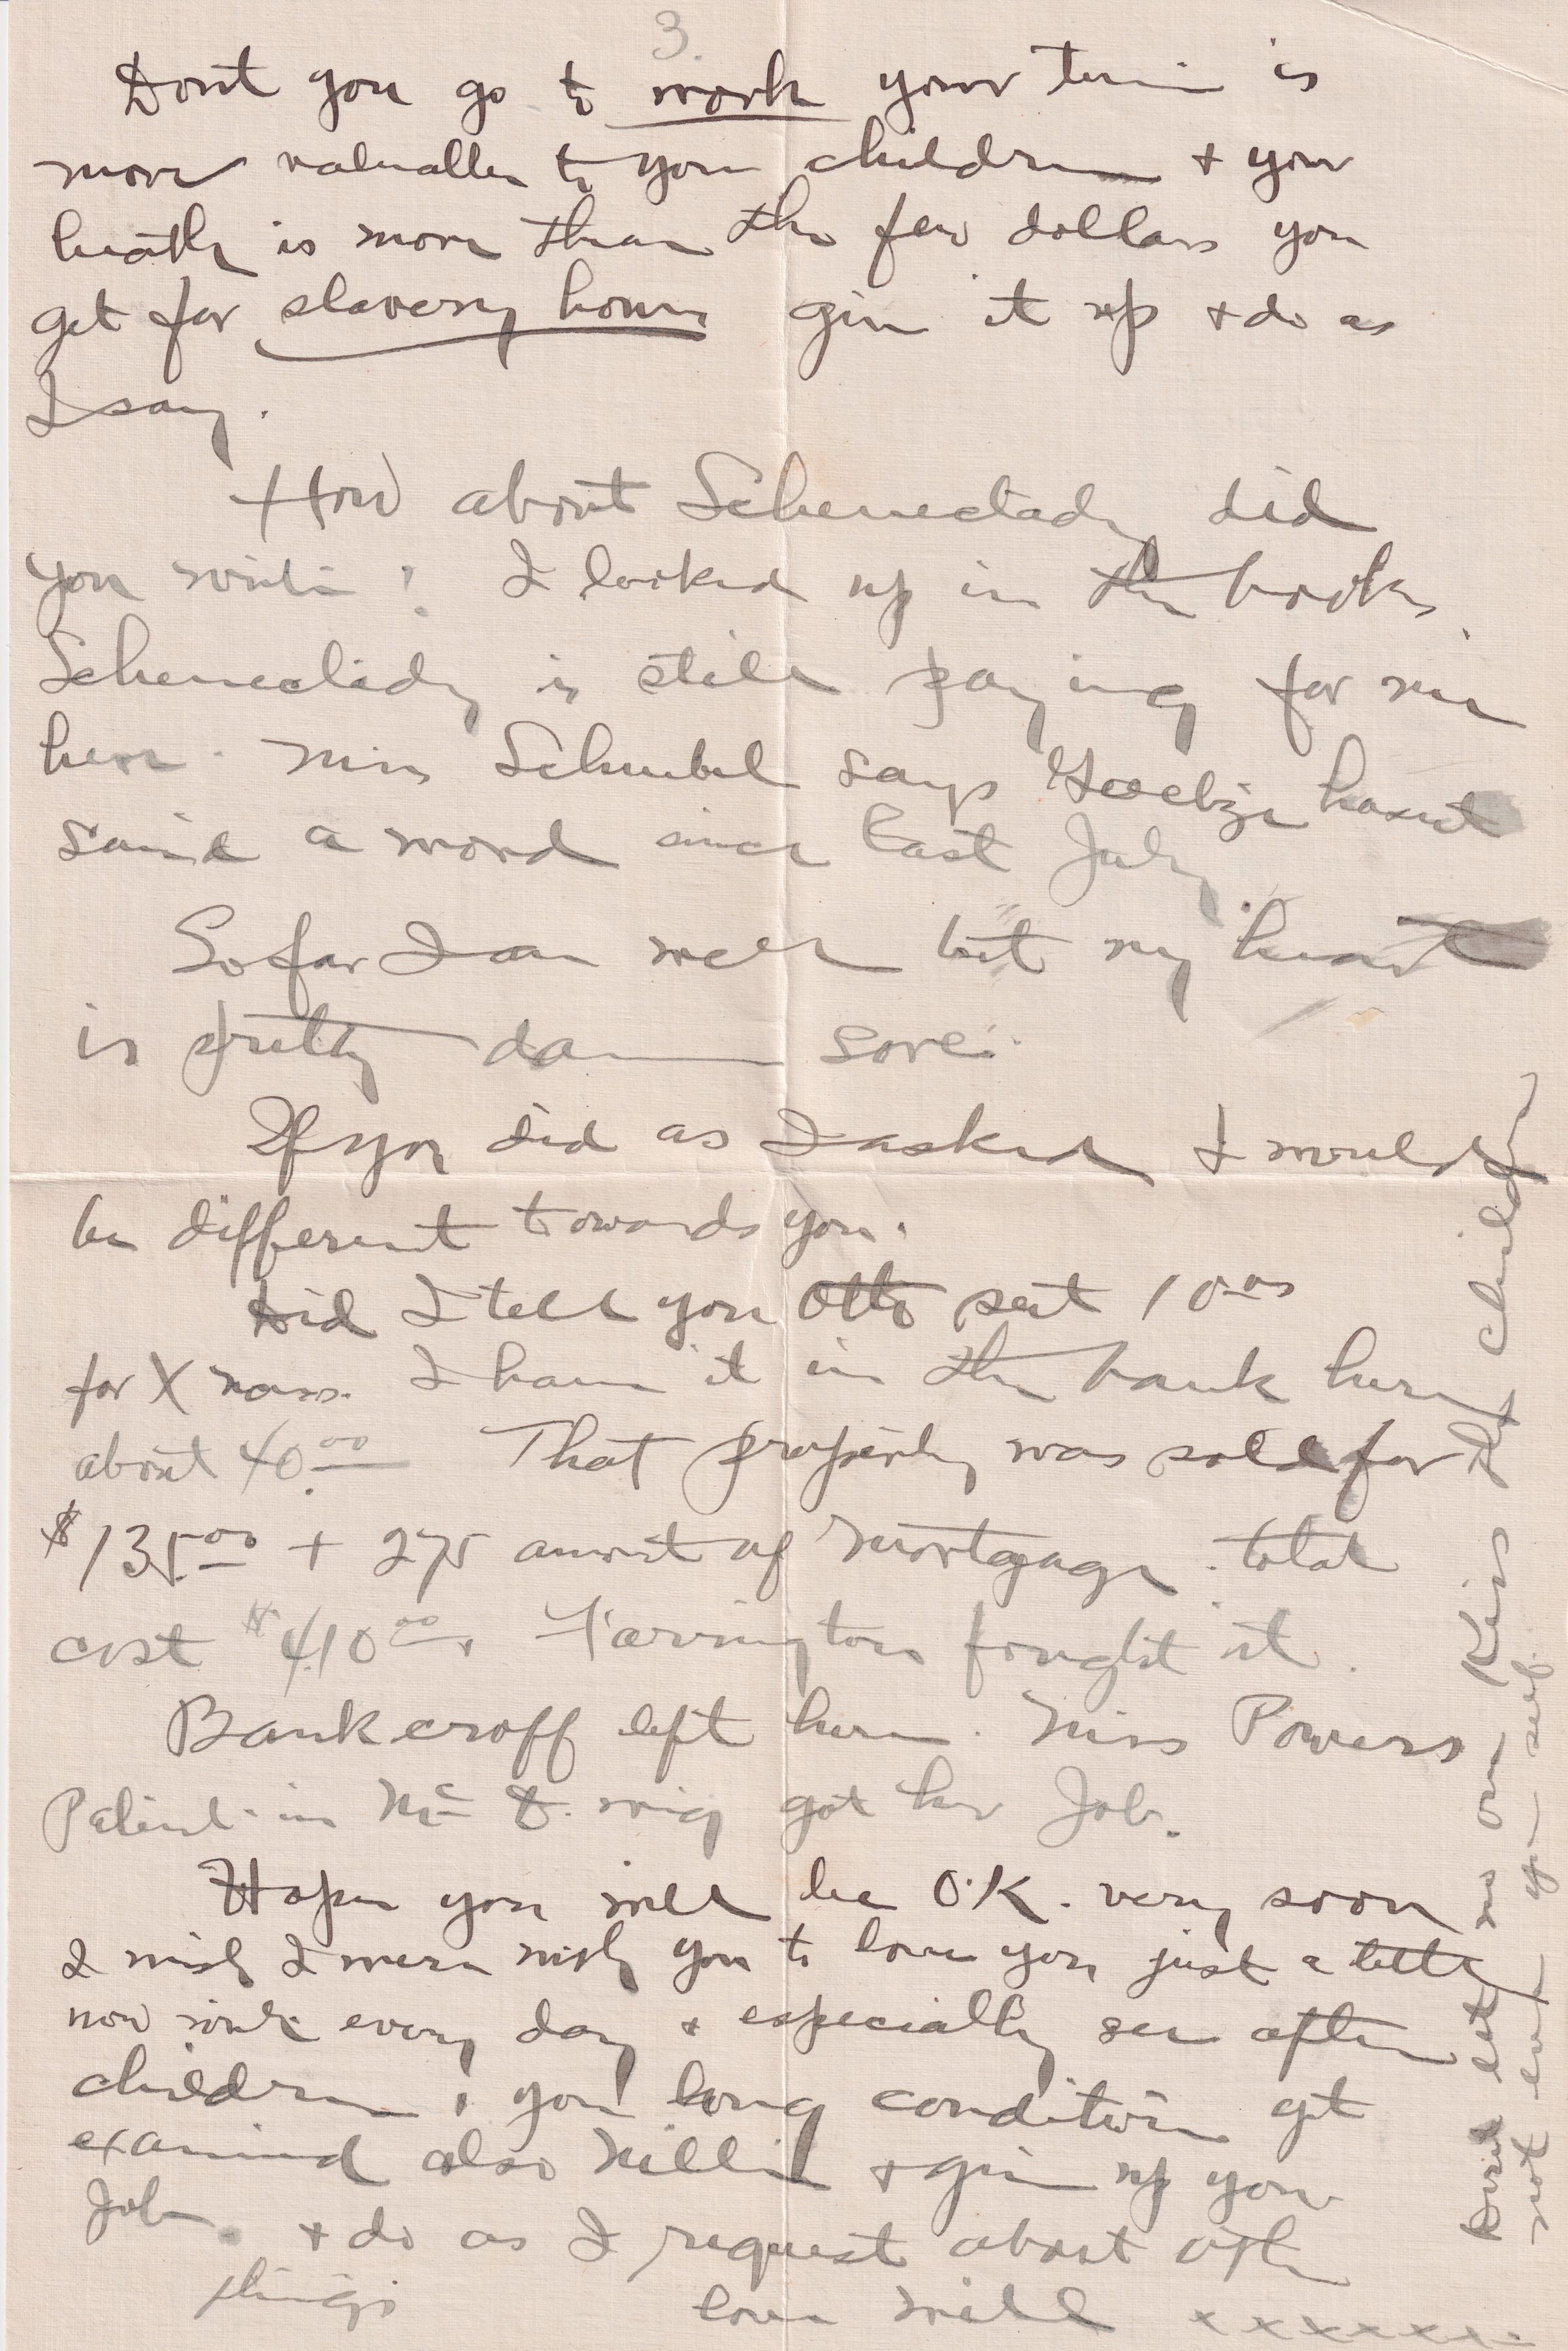 3.
Dont you go to work your time is
more valuable to your children + your
health is more than the few dollars you
get for slavery hours give it up + do as
I say.
How about Schenectady did
you write? I looked up in the books.
Schenectady is still paying for me
here. Miss Schubel says hasnt
said a word since last July.
So far I am well but my heart
is pretty damn sore.
If you did as I asked I would
be different towards you.
Did I tell you Otto sent 10.00
for Xmas. I have it in the bank here
about 40.00 That property was sold for
$135.00 + 275 amount of mortgage. total
cost $410.00. Farrington fought it.
Bankcroff left here. Miss Powers
Patient in Mc wing got her Job.
Hope you will be O.K. very soon
I wish I were with you to love you just a little
now write every day + especially see after
children, your lung condition get
examined also Millie + give up your
Job. + do as I request about other
things
love Will xxxxxxx.
Dont let no one Kiss the children
not even yourself.